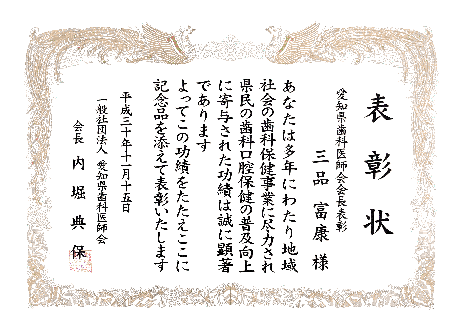 表彰状
愛知県歯科医師会会長表彰
三品富康様
あなたは多年にわたり地域
社会の歯科保健事業に尽力され
県民の歯科口腔保健の普及向上
に寄与された功績は誠に顕著
であります
よってこの功績をたたえここに
記念品を添えて表彰いたします
平成三十年十一月十五日
一般社団法人 愛知県歯科医師会
会長 内堀典保